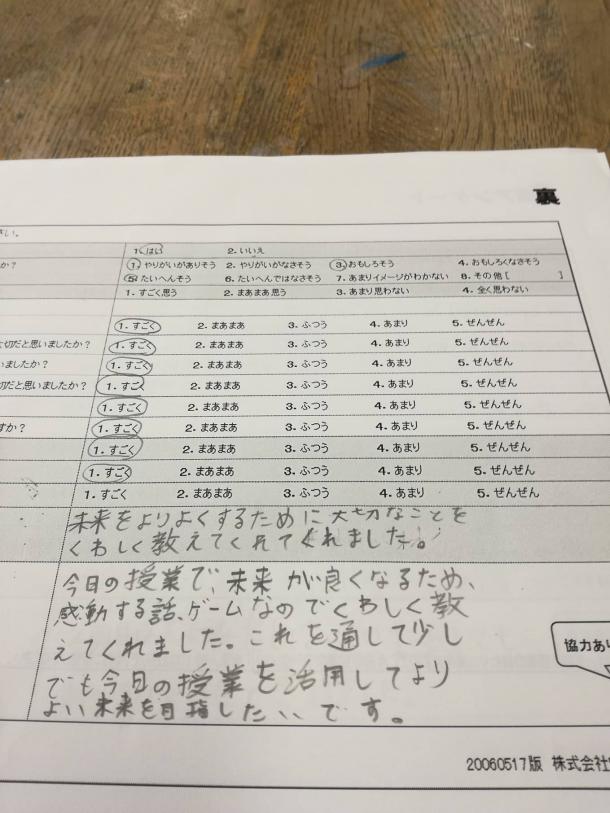 裏
さい。
1. はい 2. いいえ
か? 1. やりがいがありそう 2. やりがいがなさそう 3. おもしろそう 4. おもしろくなさそう
5. たいへんそう 6. たいへんではなさそう 7. あまりイメージがわかない 8. その他 [ ]
1. すごく思う 2. まあまあ思う 3. あまり思わない 4. 全く思わない
1. すごく 2. まあまあ 3. ふつう 4. あまり 5. ぜんぜん
切だと思いましたか? 1. すごく 2. まあまあ 3. ふつう 4. あまり 5. ぜんぜん
いましたか? 1. すごく 2. まあまあ 3. ふつう 4. あまり 5. ぜんぜん
切だと思いましたか? 1. すごく 2. まあまあ 3. ふつう 4. あまり 5. ぜんぜん
1. すごく 2. まあまあ 3. ふつう 4. あまり 5. ぜんぜん
すか? 1. すごく 2. まあまあ 3. ふつう 4. あまり 5. ぜんぜん
1. すごく 2. まあまあ 3. ふつう 4. あまり 5. ぜんぜん
1. すごく 2. まあまあ 3. ふつう 4. あまり 5. ぜんぜん
1. すごく 2. まあまあ 3. ふつう 4. あまり 5. ぜんぜん
未来をよりよくするために大切なことを
くわしく教えてくれてくれました。
今日の授業で、未来が良くなるため、
感動する話、ゲームなのでくわしく教
えてくれました。これを通して少し
でも今日の授業を活用してより
よい未来を目指したいです。
協力あり
20060517版 株式会社